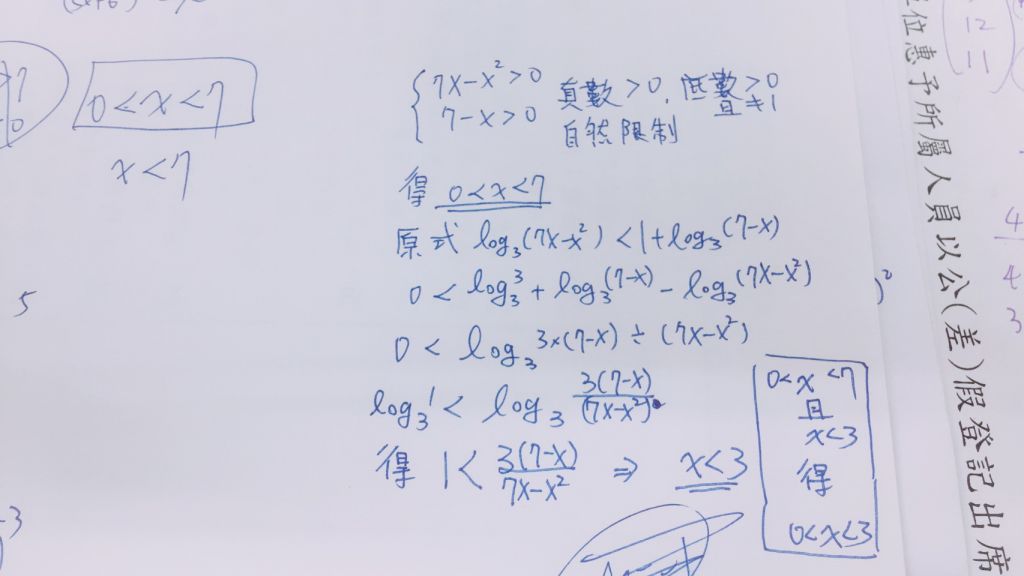 0<x<7
x<7
5
7x-x²>0 真數>0, 底數>0
7-x>0 且≠1
自然限制
得 0<x<7
原式 log₃(7x-x²)<1+log₃(7-x)
0<log₃3+log₃(7-x)-log₃(7x-x²)
0<log₃3×(7-x)÷(7x-x²)
log₃1<log₃ 3(7-x)/(7x-x²)
得 1<3(7-x)/7x-x² ⇒ x<3
0<x<7
且
x<3
得
0<x<3
位惠予所屬人員以公(差)假登記出席
12
11
4
4
3
-3